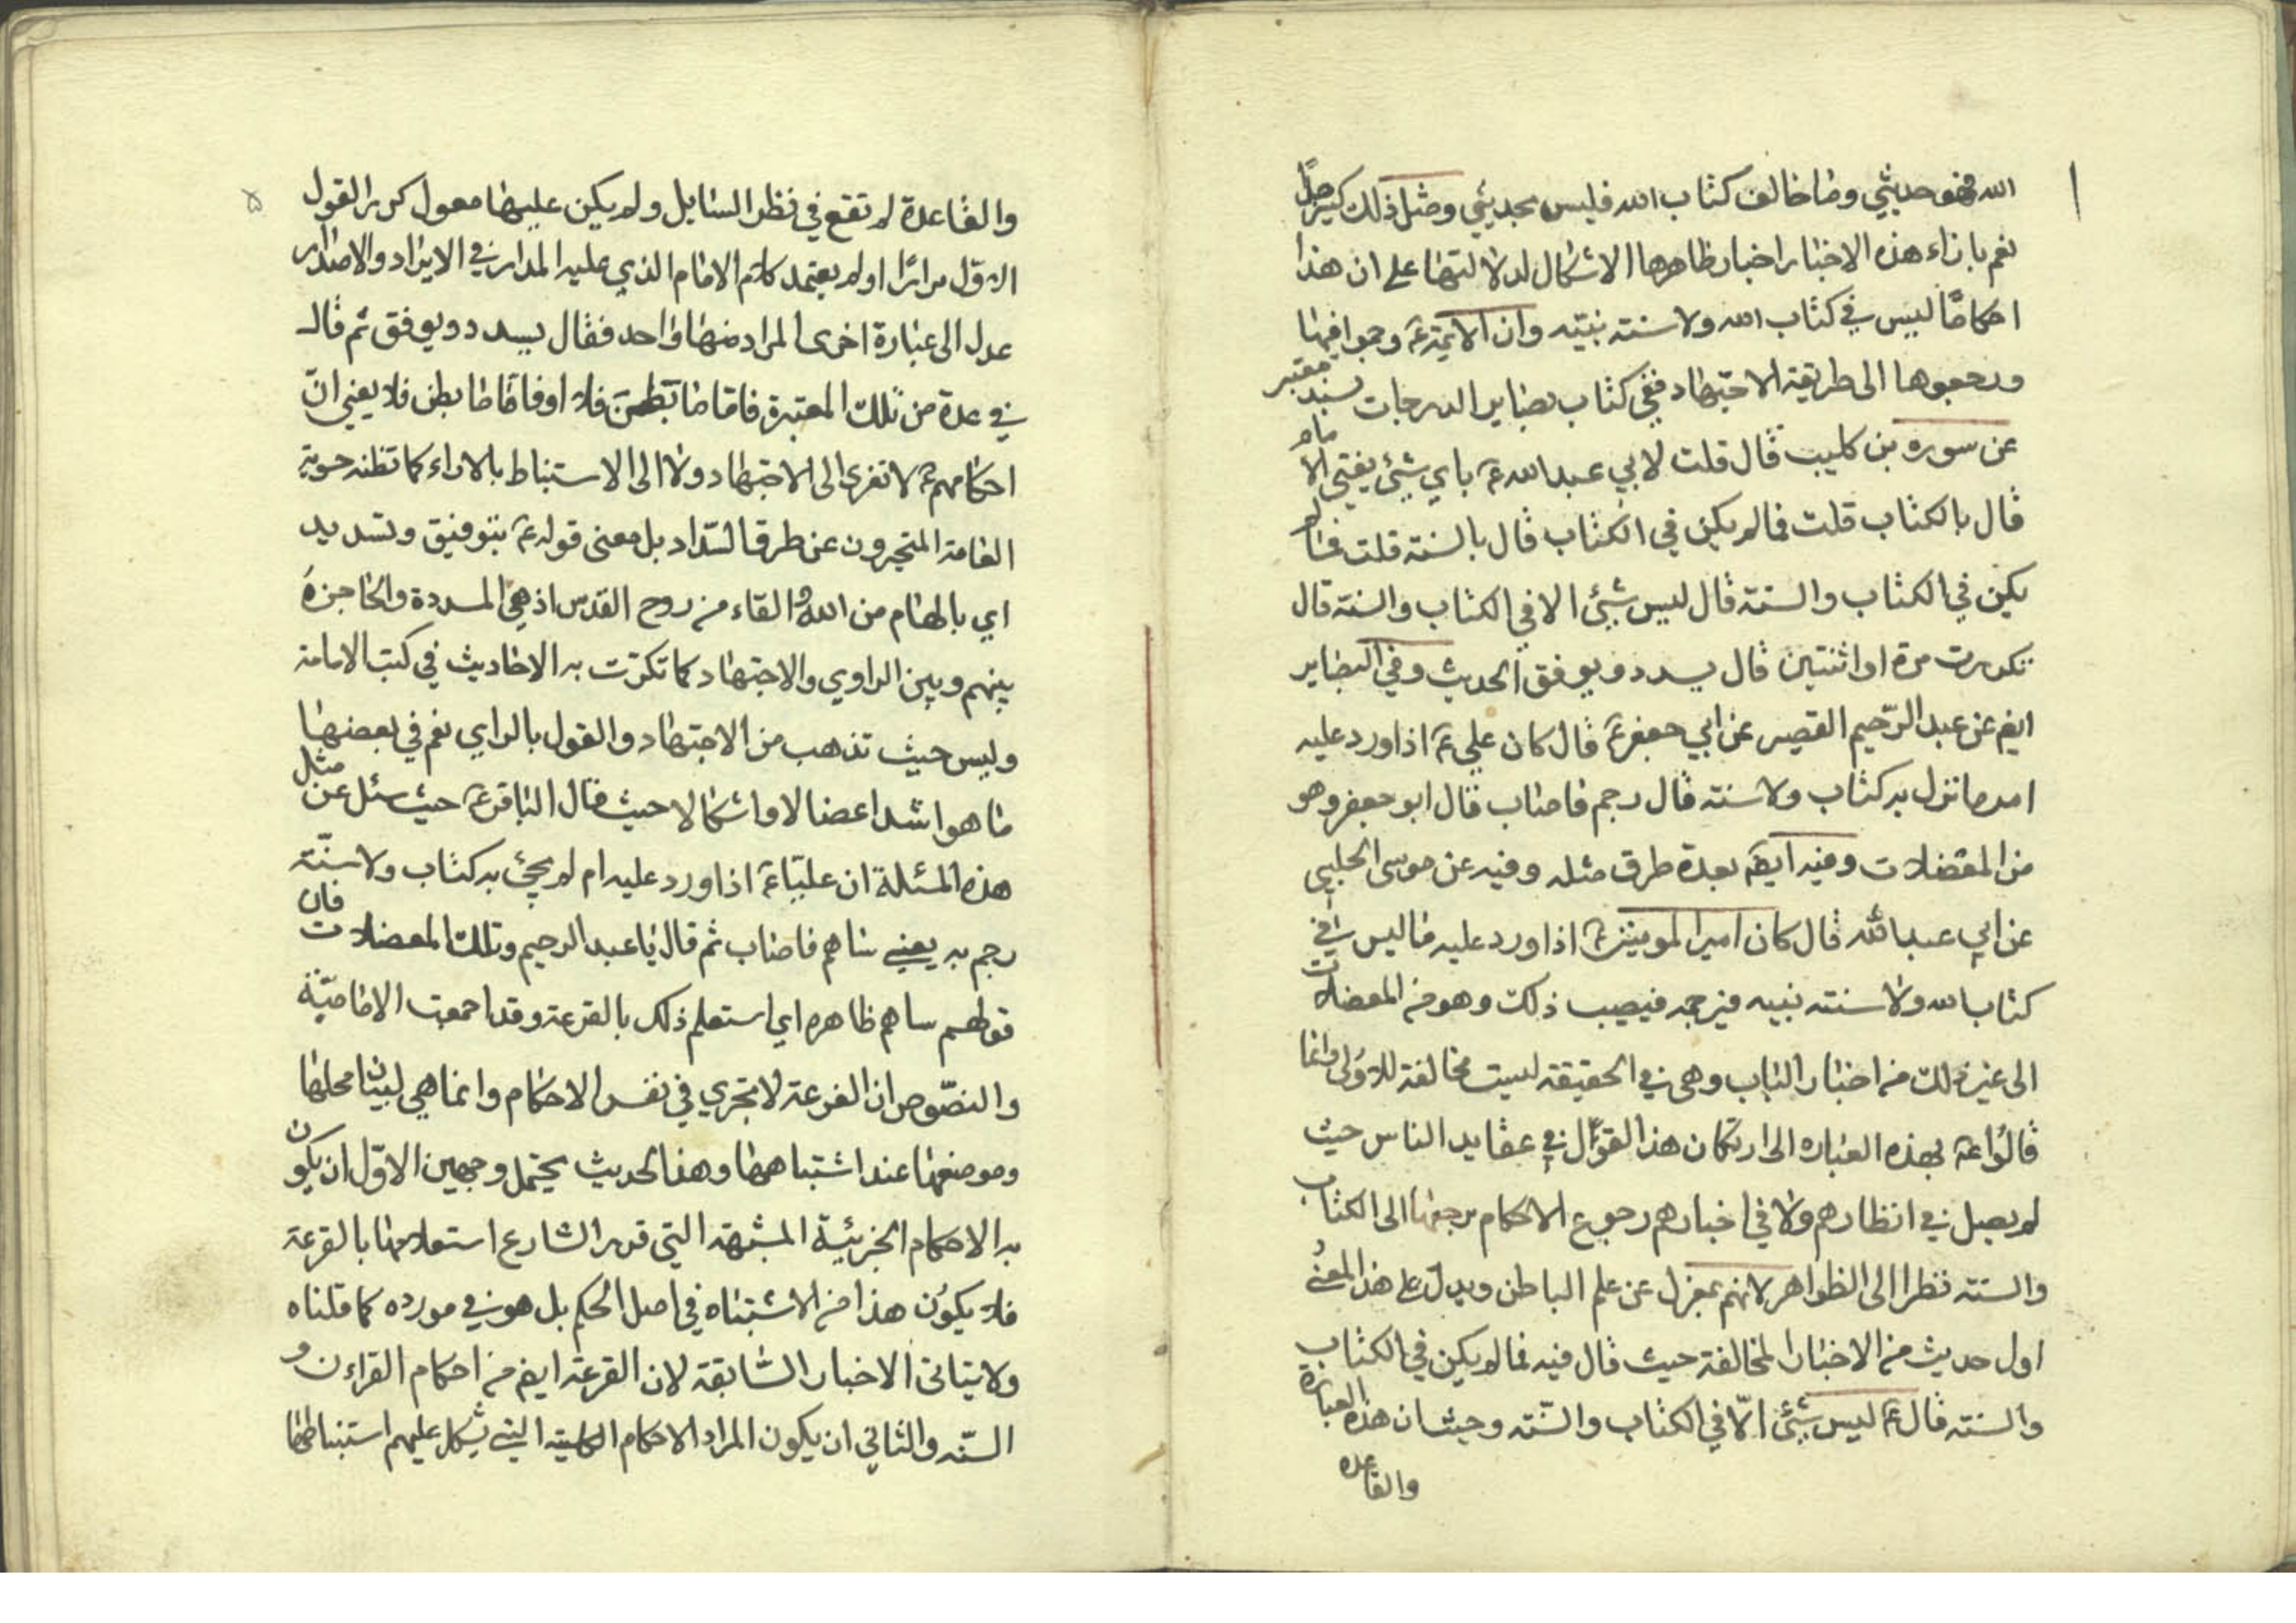 الله فهو حديثي وما خالف كتاب الله فليس بحديثي ومثل ذلك كثير جدًّا
نعم بازاء هذه الاخبار اخبار ظاهرها الاشكال لدلالتها على ان هذا
احكامًا ليس في كتاب الله ولا سنته نبيّه وان الائمة ع وجموا فيها
ورجعوها الى طريقة الاجتهاد ففي كتاب بصاير الدرجات بسند معتبر
عن سوره بن كليب قال قلت لابي عبد الله ع باي شيئ يفتي الامام
قال بالكتاب قلت فما لم يكن في الكتاب قال بالسنة قلت فما لم
يكن في الكتاب والسنة قال ليس شيئ الا في الكتاب والسنة قال
تكررت مرة او اثنتين قال يسدد ويوفق الحديث وفي البصاير
ايض عن عبد الرّحيم القصير عن ابي جعفر ع قال كان علي ع اذا ورد عليه
امر ما نزل به كتاب ولا سنة قال رجم فاصاب قال ابو جعفر وهو
من المعضلات وفيه ايضًا بعدة طرق مثله وفيه عن موسى الحلبي
عن ابي عبد الله قال كان امير المومنين ع اذا ورد عليه ما ليس في
كتاب الله ولا سنته نبيه فيرجمه فيصيب ذلك وهو من المعضلات
الى غير ذلك من اخبار الباب وهي في الحقيقة ليست مخالفة للاولى وانما
قالوا ع بهذه العباره الى ارتكان هذا القول في عقايد الناس حيث
لم يصل في انظارهم ولا في اخبارهم رجوع الاحكام برجعها الى الكتاب
والسنته نظرا الى الظواهر لانهم بمعزل عن علم الباطن ويدلّ على هذا المعنى
اول حديث من الاخبار المخالفة حيث قال فيه فما لم يكن في الكتاب
والسنته قال ع ليس شيئ الّا في الكتاب والسّنته وحيث ان هذه العبارة
والقاعده
۵
والقاعدة لم تقع في نظر السايل ولم يكن عليها معول كرر القول
الاول مرارًا او لم يعتمد كلام الامام الذي عليه المدار في الايراد والاصدار
عدل الى عبارة اخرى المراد منها واحد فقال يسدد ويوفق ثم قال
في عدة من تلك المعتبرة فاما ما تظن فلا او فاما ما بطن فلا يعني انّ
احكامهم ع لا تفرى الى الاجتهاد ولا الى الاستنباط بالاراء كما تظنه حوية
العامة المتحيرون عن طرق السّداد بل معنى قوله ع بتوفيق وتسديد
اي بالهام من الله والقاء من روح القدس اذ هي المسددة والحاجزة
بينهم وبين الراوي والاجتهاد كما تكررت به الاحاديث في كتب الامامة
وليس حيث تذهب من الاجتهاد والقول بالراي نعم في بعضها
ما هو اشد اعضالا واشكالا حيث قال الباقر ع حيث سئل عن مثل
هذه المسئلة ان عليّا ع اذا ورد عليه ام لم يجئ به كتاب ولا سنّته
رجم به يعني ساهم فاصاب ثم قال يا عبد الرحيم وتلك المعضلات فان
قولهم ساهم ظاهره اي استعلم ذلك بالقرعة وقد اجمعت الاماميّة
والنصّوص ان القرعة لا تجري في نفس الاحكام وانما هي لبيان محلها
وموضعها عند اشتباهها وهذا الحديث يحتمل وجهين الاوّل ان يكون
به الاحكام الجزئيّة المشبهة التي قرر الشارع استعلامها بالقرعة
فلا يكون هذا من الاشتباه في اصل الحكم بل هو في مورده كما قلناه
ولا يتاتى الاخبار السّابقة لان القرعة ايض من احكام القراءن و
السّنة والثاني ان يكون المراد الاحكام الكلية التي يشكل عليهم استنباطها